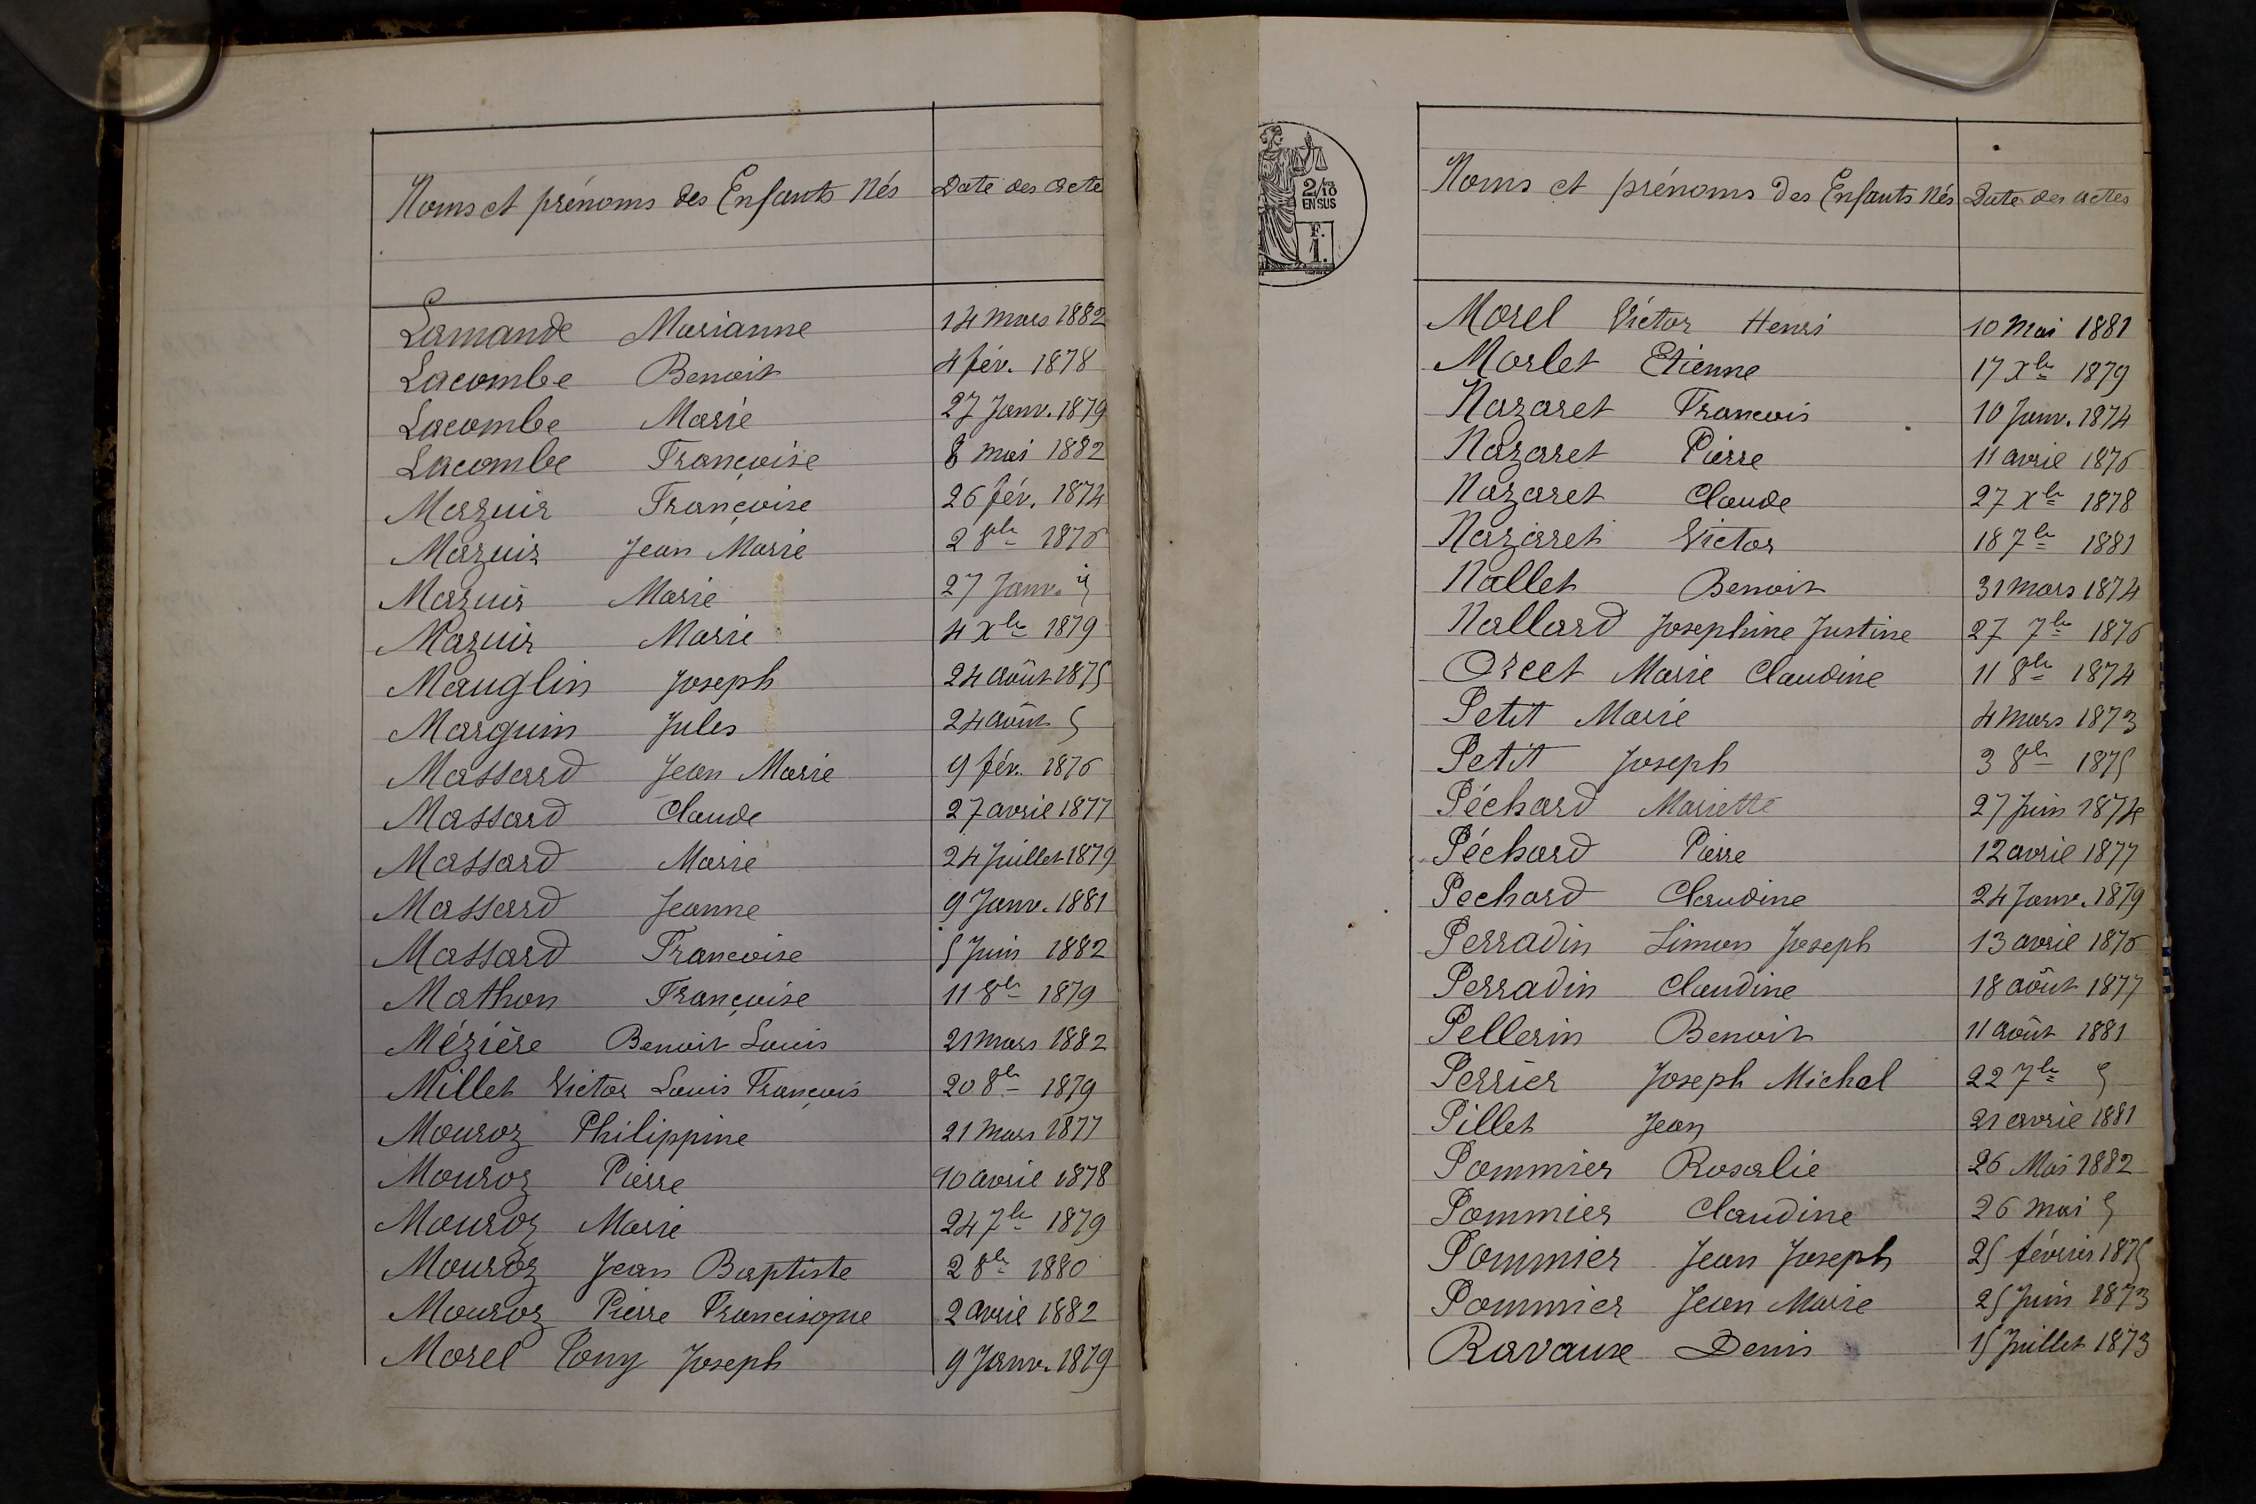 Noms et prénoms des Enfants Nés Date des acte
Lamande Marianne 14 mars 1882
Lacombe Benoit 4 fév. 1878
Lacombe Marie 27 Janv. 1879
Lacombe Françoise 8 mai 1882
Mazuir Françoise 26 fév. 1874
Mazuir Jean Marie 2 8bre 1876
Mazuir Marie 27 Janv.
Mazuir Marie 4 Xbre 1879
Mauglin Joseph 24 août 1875
Marguin Jules 24 août
Massard Jean Marie 9 fév. 1876
Massard Claude 27 avril 1877
Massard Marie 24 Juillet 1879
Massard Jeanne 9 Janv. 1881
Massard Francoise 5 Juin 1882
Mathon Françoise 11 8bre 1879
Mézière Benoit Louis 21 mars 1882
Millet Victor Louis François 20 8bre 1879
Mouroz Philippine 21 mars 1877
Mouroz Pierre 10 avril 1878
Mouroz Marie 24 7bre 1879
Mouroz Jean Baptiste 2 8bre 1880
Mouroz Pierre Francisque 2 avril 1882
Morel Tony Joseph 9 Janv. 1879
2/10
EN SUS
F.
1.
Noms et prénoms des Enfants Nés Date des actes
Morel Victor Henri 10 Mai 1881
Morlet Etienne 17 Xbre 1879
Nazaret Francois 10 Janv. 1874
Nazaret Pierre 11 avril 1876
Nazaret Claude 27 Xbre 1878
Nazaret Victor 18 7bre 1881
Nallet Benoit 31 mars 1874
Nallard Josephine Justine 27 7bre 1876
Orcet Marie Claudine 11 8bre 1874
Petit Marie 4 mars 1873
Petit Joseph 3 8bre 1875
Péchard Mariette 27 Juin 1874
Péchard Pierre 12 avril 1877
Pechard Claudine 24 Janv. 1879
Perradin Simon Joseph 13 avril 1876
Perradin Claudine 18 août 1877
Pellerin Benoit 11 août 1881
Perrier Joseph Michel 22 7bre
Pillet Jean 21 avril 1881
Pommier Rosalie 26 Mai 1882
Pommier Claudine 26 mai
Pommier Jean Joseph 25 février 1875
Pommier Jean Marie 25 Juin 1873
Ravaux Denis 15 Juillet 1873